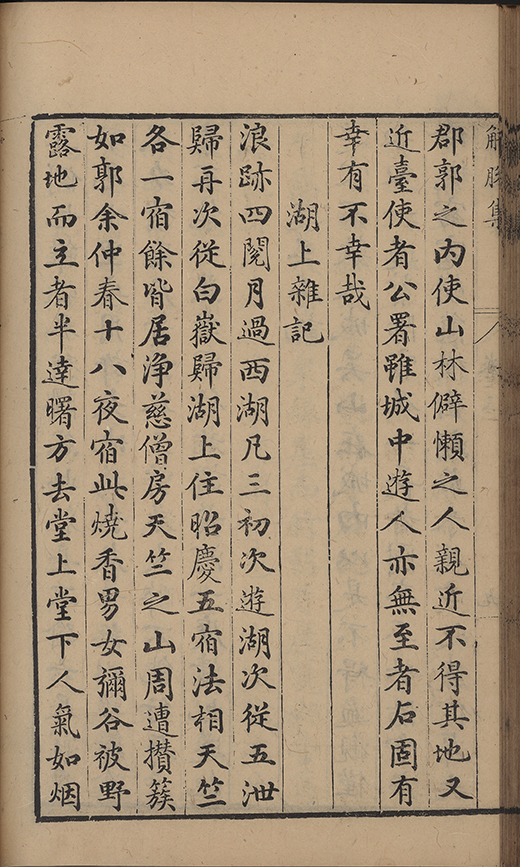 解脫集
郡郭之內使山林僻懶之人親近不得其地又
近臺使者公署雖城中遊人亦無至者石固有
幸有不幸哉
湖上雜記
浪跡四閱月過西湖凡三初次遊湖次從五泄
歸再次從白嶽歸湖上住昭慶五宿法相天竺
各一宿餘皆居淨慈僧房天竺之山周遭攢簇
如郭余仲春十八夜宿此燒香男女彌谷被野
露地而立者半達曙方去堂上堂下人氣如烟